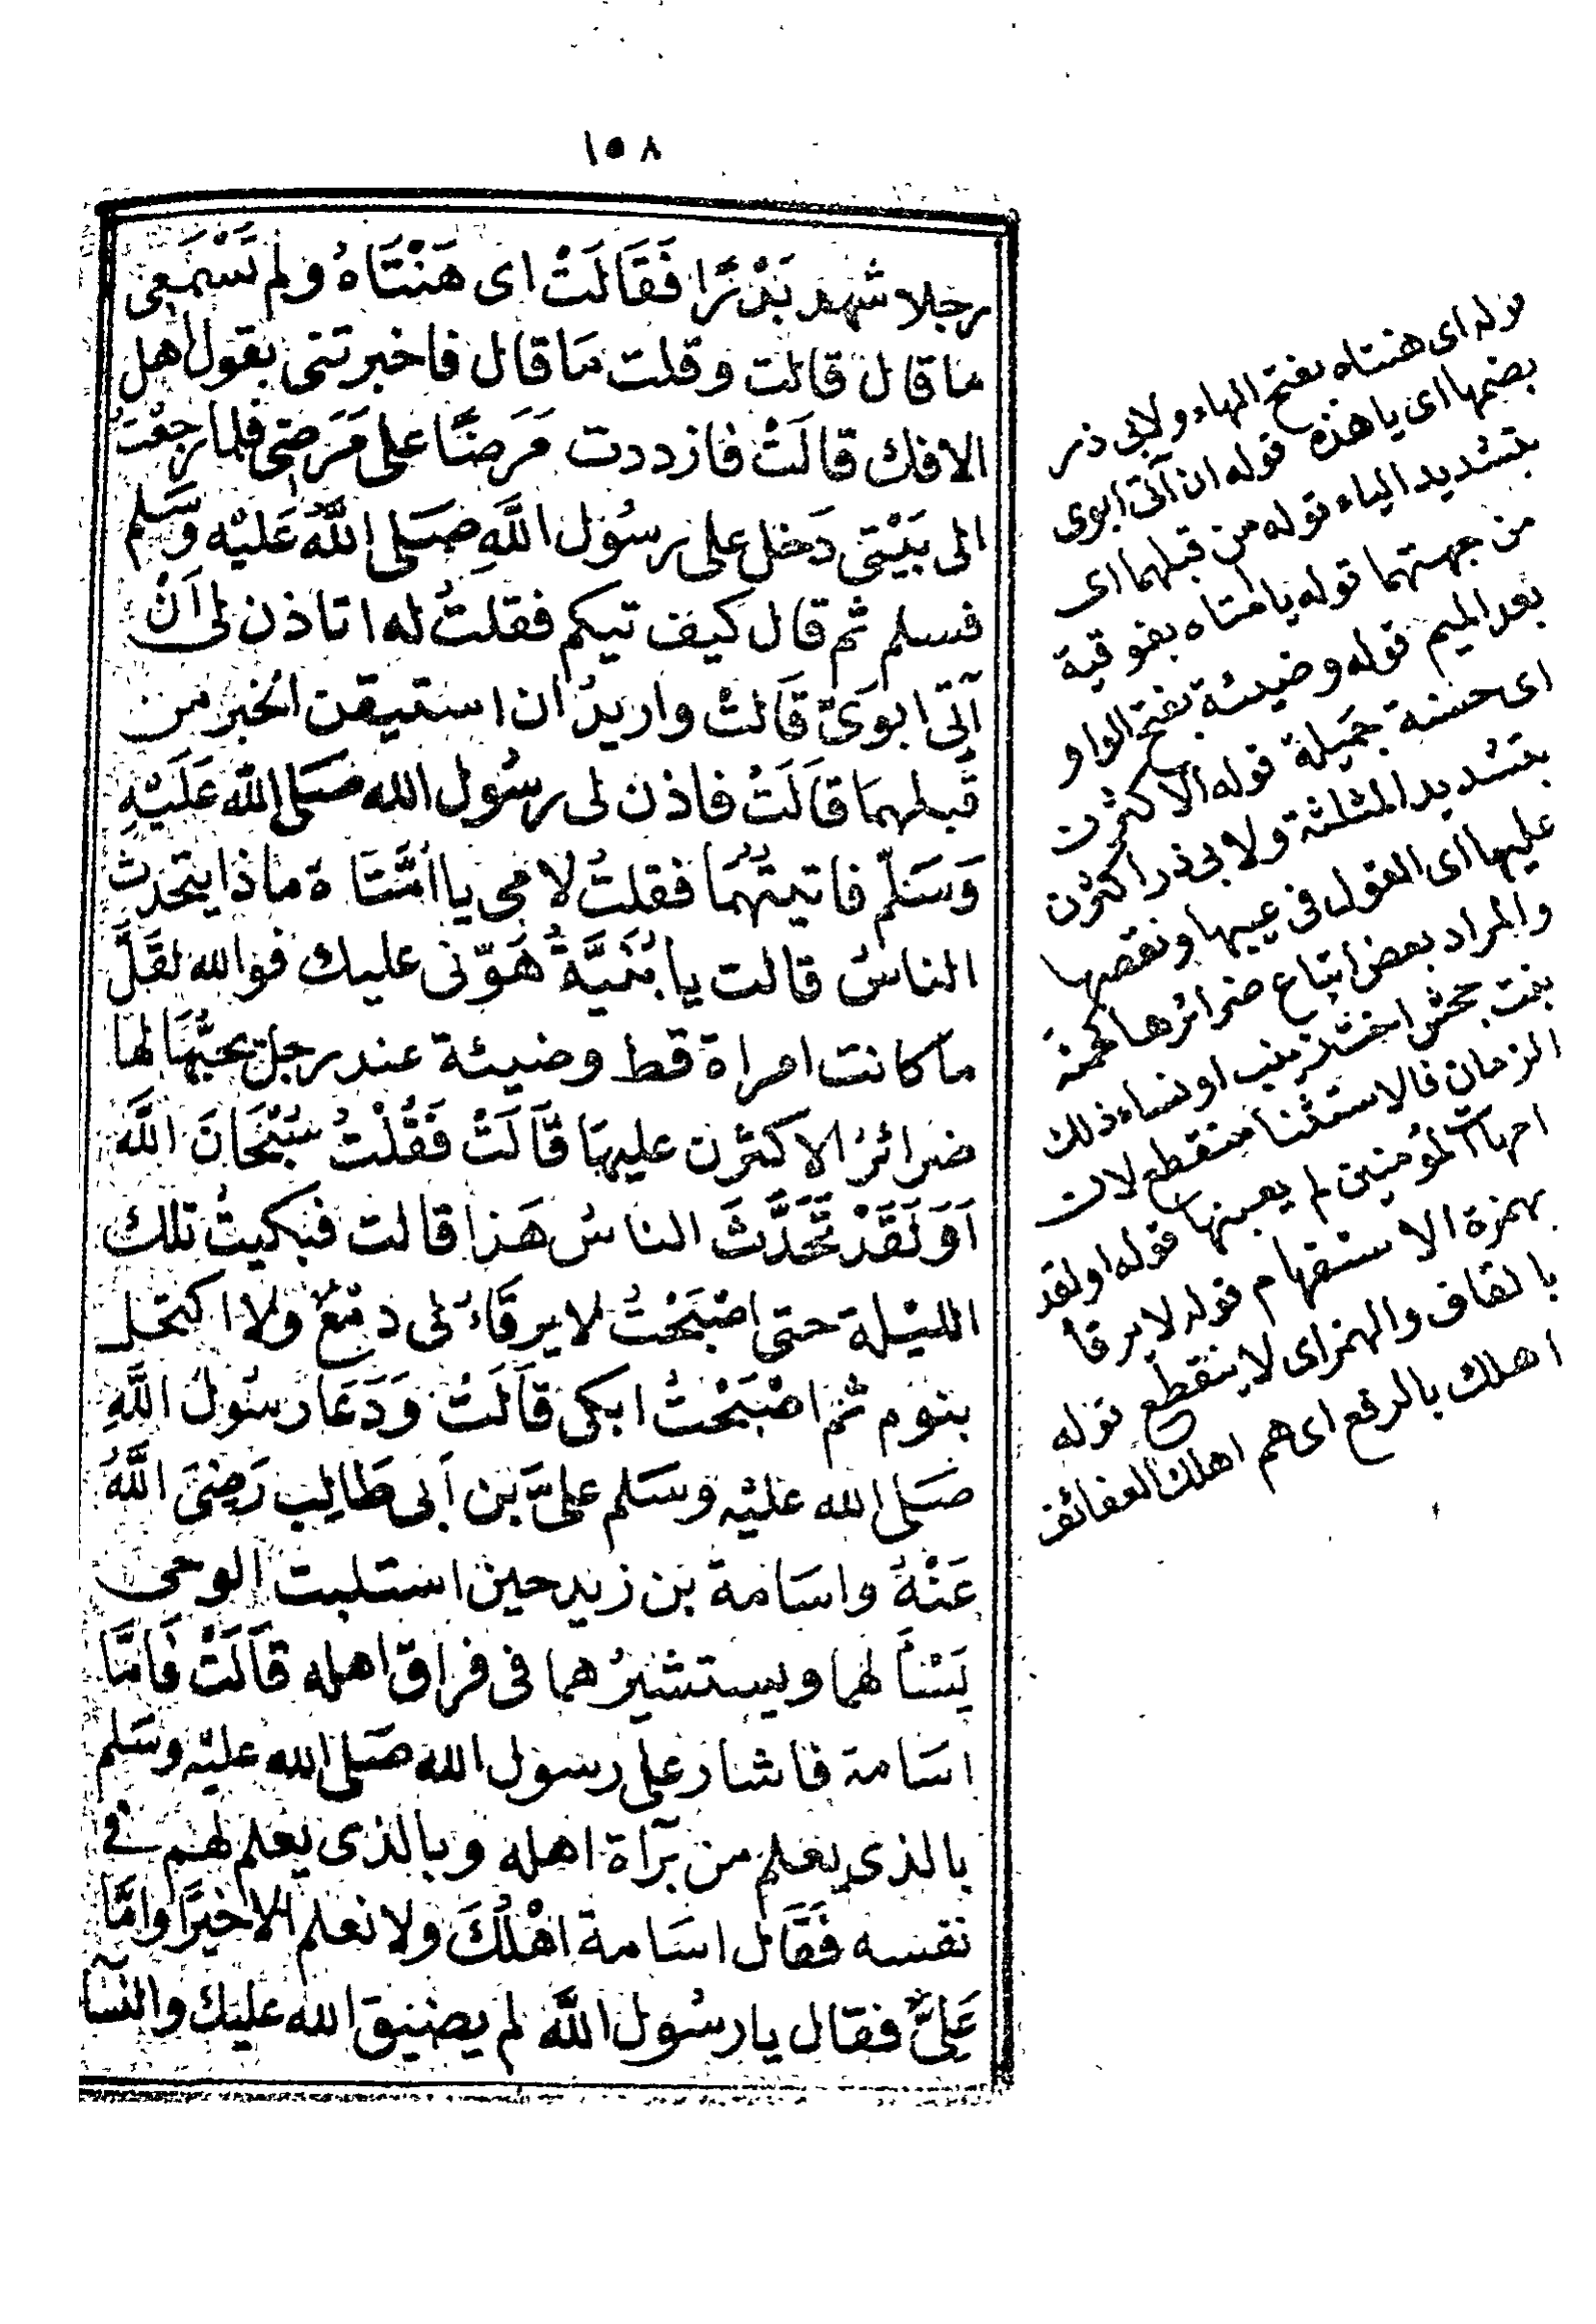 ١٥٨
رجلا شهد بَدْرًا فَقَالَتْ اى هَنْتَاهُ ولم تَسْمَعِى
ما قال قالت وقلت مَا قال فاخبرتنى بقول اهل
الافك قالَتْ فازددت مَرَضًا على مَرَضى فلما رجعْتُ
الى بَيْتى دَخل على رسُول اللَّهِ صَلى اللَّهُ عَلَيْه وسَلم
فسلم ثم قال كيف تيكم فقلتُ له اتاذن لى اَنْ
آتِىَ ابوَىَّ قَالتْ واريدُ ان استيقن الخبر من
قِبلهمَا قَالَتْ فاذن لى رسُول الله صَلى الله عَلَيْهِ
وَسَلّم فاتيتُهُمَا فقلتُ لامى يا اُمَّتَاهْ ماذا يتحدث
الناسُ قالت يا بُنَيَّةُ هَوّنى عليك فوالله لقَلَّ
ما كانت امراة قط وضيئة عند رجل يحبُّهَا لها
ضرائرُ الا كثرن عليهَا قَالَتْ فَقُلْتُ سُبْحَانَ اللَّه
اَوَلَقَدْ تَحَدَّثَ الناسُ هَذا قالت فبكيتُ تلك
الليْلة حتى اصْبَحْتُ لا يرقَاءُ لى دمْعٌ ولا اكتحل
بنوم ثم اصْبَحْتُ ابكى قَالَتْ وَدَعَا رسُولُ اللَّهِ
صَلى الله عليْه وسَلم علىَّ بن اَبى طَالِب رَضِىَ اللَّهُ
عَنْهُ واسَامة بن زيد حين استلبت الوحى
يَسْأَلهما ويستشيرُهما فى فراق اهله قَالَتْ فَامَّا
اسَامة فاشار على رسول الله صَلى الله عليْه وسَلم
بالذى يعلم من بَرآة اهله وبالذى يعلم لهم فى
نفسه فَقَال اسَامة اهْلُكَ ولا نعلم الا خيرًا وامَّا
عَلىٌّ فقال يا رسُول اللَّه لم يضيق الله عليك والنسآ
قوله اى هنتاه بفتح الهاء ولابى ذر
بضمها اى يا هذه قوله ان آتى ابوى
بتشديد الياء قوله من قبلهما اى
من جهتهما قوله يا امتاه بفوقية
بعد الميم قوله وضيئة بفتح الواو
اى حسنة جميلة قوله الا كثرن
بتشديد المثلثة ولابى ذر اكثرن
عليها اى القول فى عيبها ونقصها
والمراد بعض اتباع ضرائرها كحمنة
بنت جحش اخت زينب او نساء ذلك
الزمان فالاستثنا منقطع لان
امهات المؤمنين لم يعبنها قوله اولقد
بهمزة الاستفهام قوله لا يرقأ
بالقاف والهمز اى لا ينقطع قوله
اهلك بالرفع اى هم اهلك العفائف